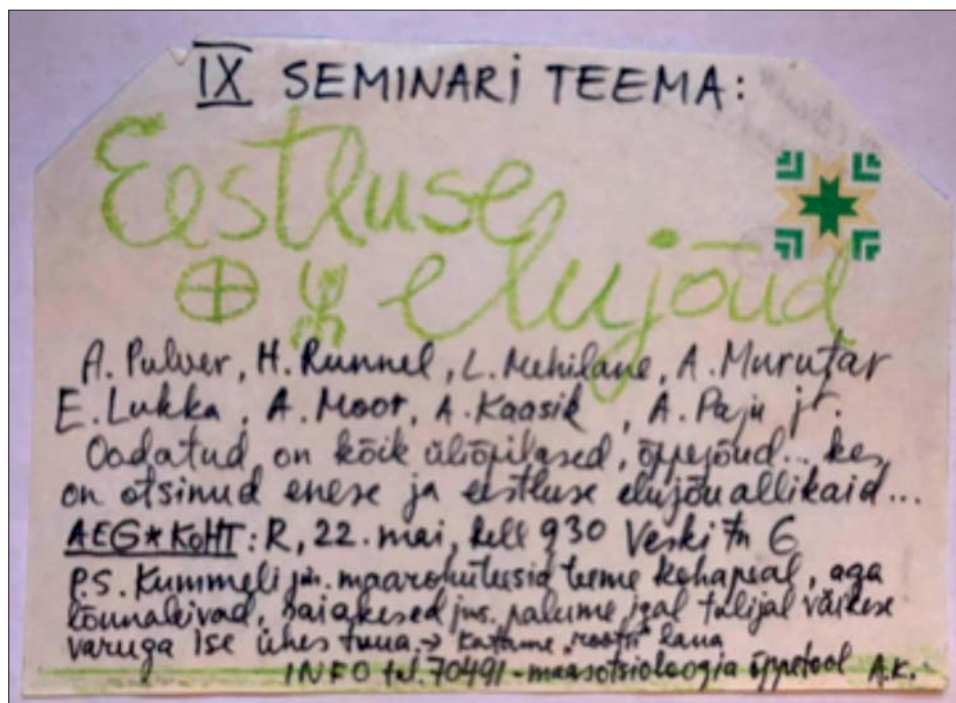 IX SEMINARI TEEMA:
Eestluse
elujõud
A. Pulver, H. Runnel, L. Mehilane, A. Murutar
E. Lukka, A. Moor, A. Kaasik, A. Paju jt.
Oodatud on kõik üliõpilased, õppejõud... kes
on otsinud enese ja eestluse elujõu allikaid...
AEG*KOHT: R, 22. mai, kell 9 30 Veski tn 6
P.S. Kummeli jm. maarohuteesid teeme kohapeal, aga
lõunaleivad, saiakesed palume igal tulijal väikese
varuga ise ühes tuua. → Katame "rootsi" laua
INFO tel. 70491 - maasotsioloogia õppetool A.K.